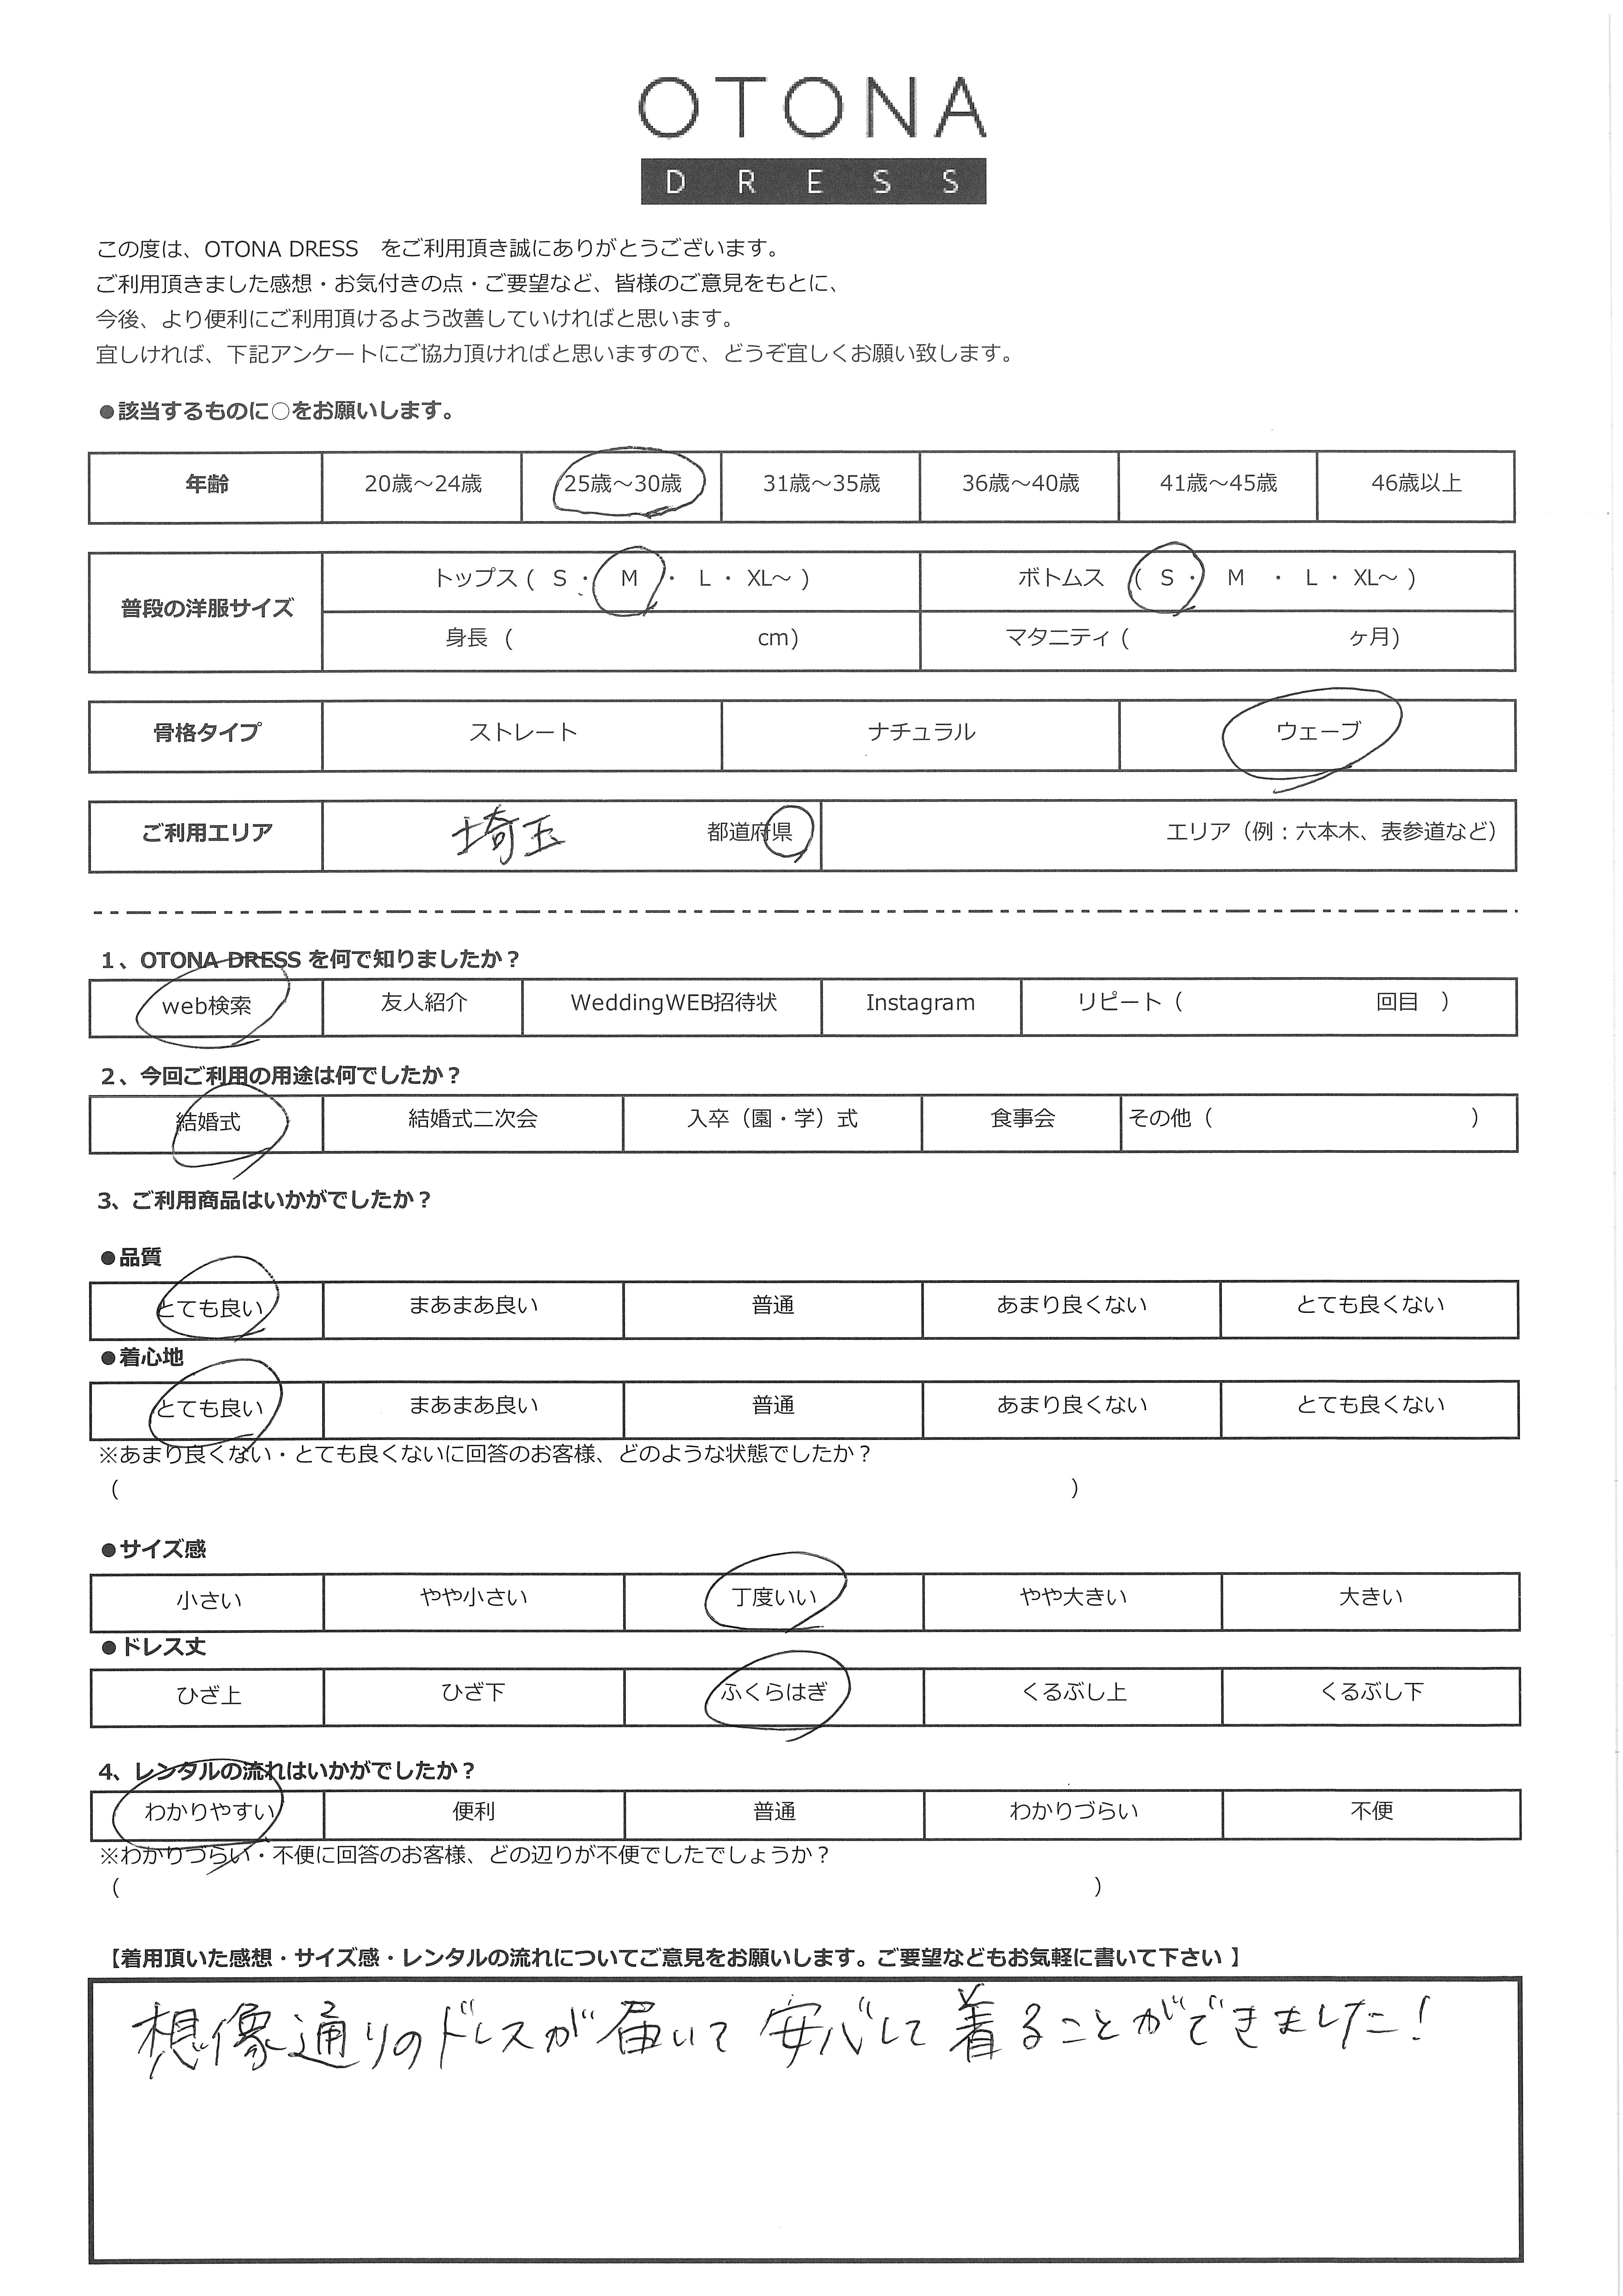 OTONA
DRESS
この度は、OTONA DRESS　をご利用頂き誠にありがとうございます。
ご利用頂きました感想・お気付きの点・ご要望など、皆様のご意見をもとに、
今後、より便利にご利用頂けるよう改善していければと思います。
宜しければ、下記アンケートにご協力頂ければと思いますので、どうぞ宜しくお願い致します。
●該当するものに○をお願いします。
年齢 20歳～24歳 25歳～30歳 31歳～35歳 36歳～40歳 41歳～45歳 46歳以上
普段の洋服サイズ トップス ( S ・ M ・ L ・ XL～ ) ボトムス ( S ・ M ・ L ・ XL～ )
身長 ( cm) マタニティ ( ヶ月)
骨格タイプ ストレート ナチュラル ウェーブ
ご利用エリア 埼玉 都道府県 エリア（例：六本木、表参道など）
1、OTONA DRESS を何で知りましたか？
web検索 友人紹介 WeddingWEB招待状 Instagram リピート（ 回目 ）
2、今回ご利用の用途は何でしたか？
結婚式 結婚式二次会 入卒（園・学）式 食事会 その他（ ）
3、ご利用商品はいかがでしたか？
●品質
とても良い まあまあ良い 普通 あまり良くない とても良くない
●着心地
とても良い まあまあ良い 普通 あまり良くない とても良くない
※あまり良くない・とても良くないに回答のお客様、どのような状態でしたか？
（ ）
●サイズ感
小さい やや小さい 丁度いい やや大きい 大きい
●ドレス丈
ひざ上 ひざ下 ふくらはぎ くるぶし上 くるぶし下
4、レンタルの流れはいかがでしたか？
わかりやすい 便利 普通 わかりづらい 不便
※わかりづらい・不便に回答のお客様、どの辺りが不便でしたでしょうか？
（ ）
【着用頂いた感想・サイズ感・レンタルの流れについてご意見をお願いします。ご要望などもお気軽に書いて下さい 】
想像通りのドレスが届いて安心して着ることができました！